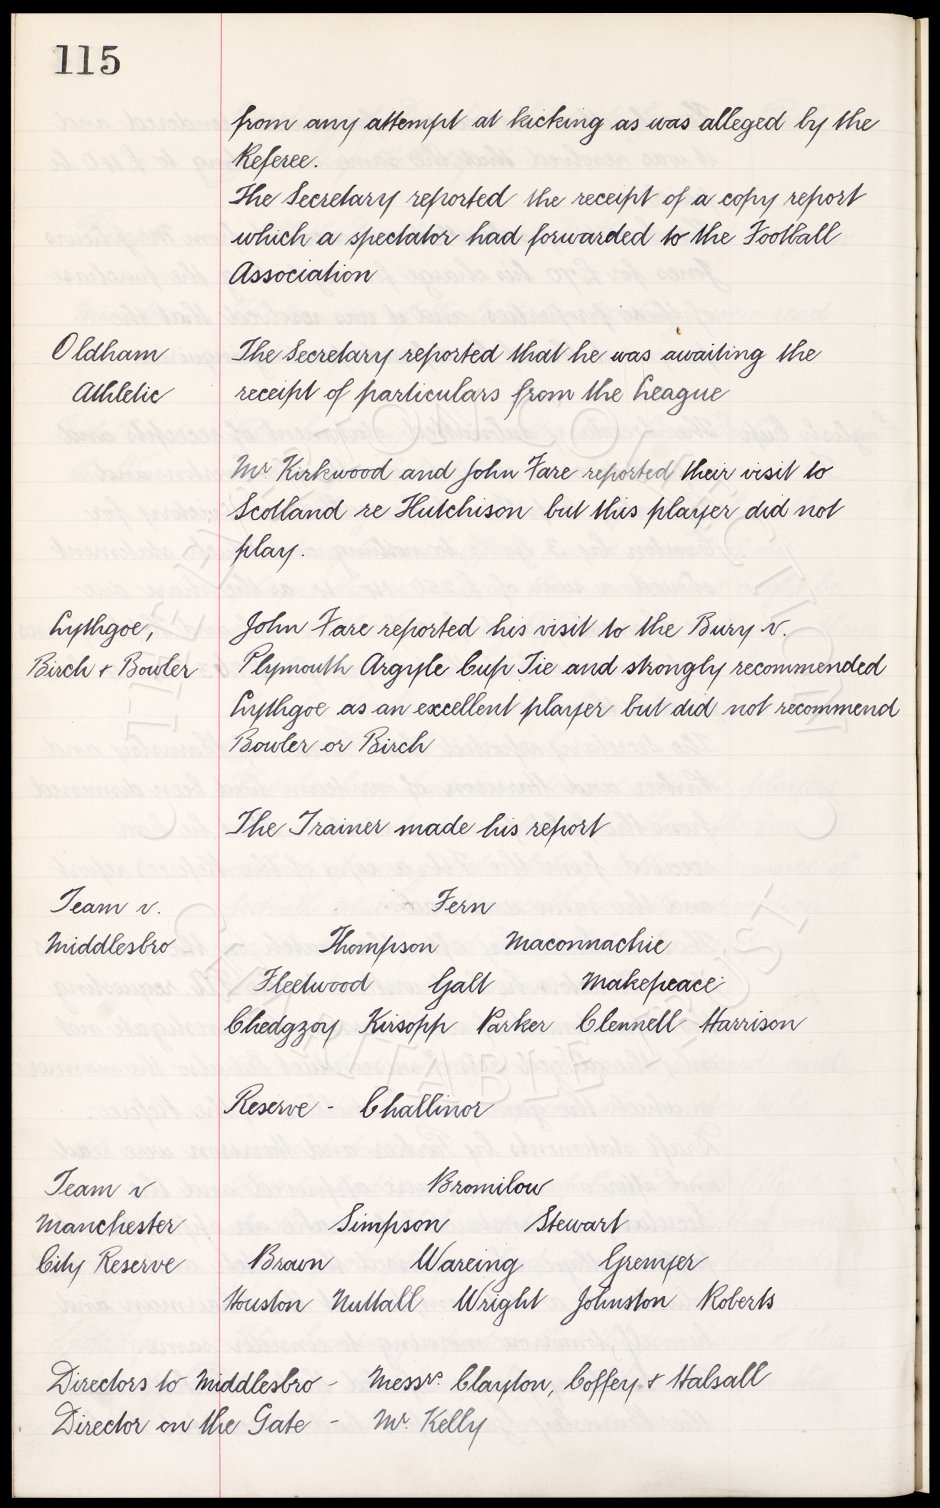 115
from any attempt at kicking as was alleged by the
Referee.
The Secretary reported the receipt of a copy report
which a spectator had forwarded to the Football
Association
Oldham
Athletic
The Secretary reported that he was awaiting the
receipt of particulars from the League
Mr Kirkwood and John Fare reported their visit to
Scotland re Hutchison but this player did not
play.
Lythgoe,
Birch & Bowler
John Fare reported his visit to the Bury v.
Plymouth Argyle Cup Tie and strongly recommended
Lythgoe as an excellent player but did not recommend
Bowler or Birch
The Trainer made his report
Team v.
Middlesbro
Fern
Thompson Maconnachie
Fleetwood Galt Makepeace
Chedgzoy Kirsopp Parker Clennell Harrison
Reserve - Challinor
Team v
Manchester
City Reserve
Bromilow
Simpson Stewart
Brown Wareing Grenyer
Houston Nuttall Wright Johnston Roberts
Directors to Middlesbro - Messrs. Clayton, Coffey & Halsall
Director on the Gate - Mr. Kelly